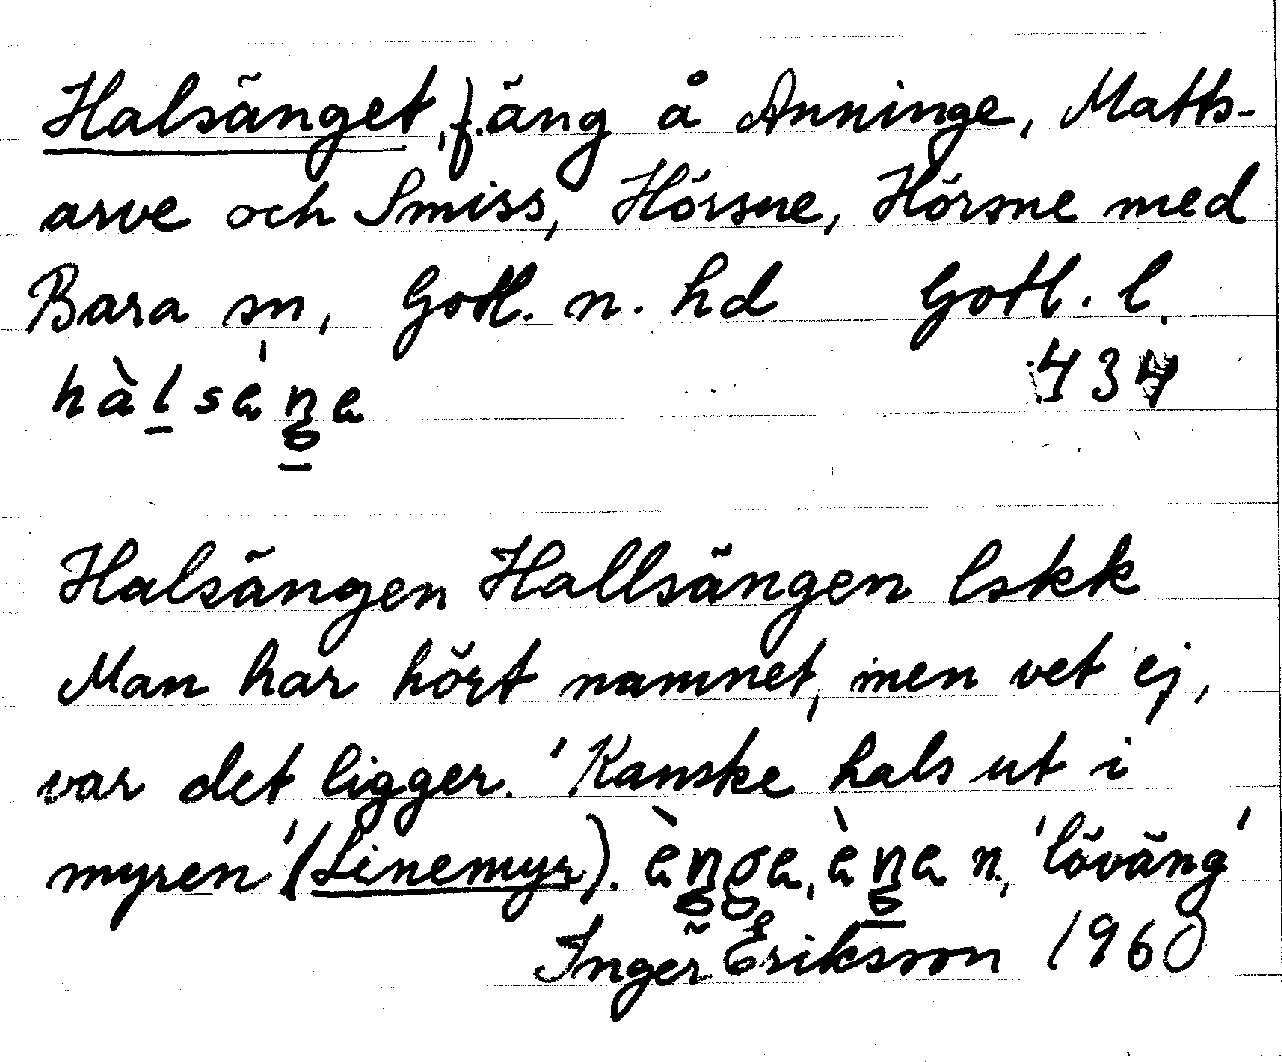 Halsänget, f. äng å Anninge, Matts-
arve och Smiss, Hörsne, Hörsne med
Bara sn, Gotl. n. hd Gotl. l.
434
Halsängen Hallsängen lskk
Man har hört namnet, men vet ej,
var det ligger. 'Kanske hals ut i
myren' (Linemyr). n, 'löväng'
Inger Eriksson 1960